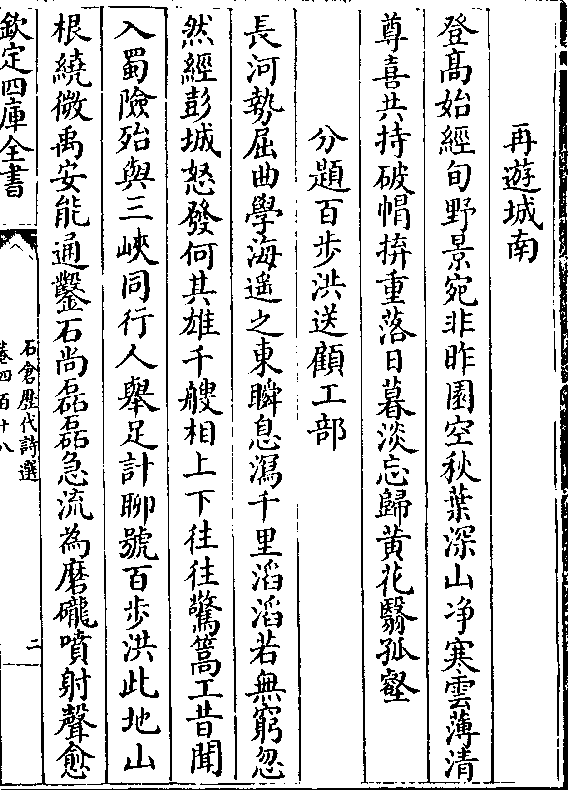 再遊城南
登髙始經旬野景宛非昨園空秋葉深山净寒雲薄清
尊喜共持破㡌拚重落日暮淡忘歸黄花翳孤壑
分題百步洪送顧工部
長河勢屈曲學海遥之東瞬息瀉千里滔滔若無窮忽
然經彭城怒發何其雄千艘相上下往往驚篙工昔聞
入蜀險殆與三峽同行人舉足計聊號百步洪此地山
根繞微禹安能通鑿石尚磊磊急流為磨礲噴射聲愈
欽定四庫全書
石倉歴代詩選
卷四百十八
二